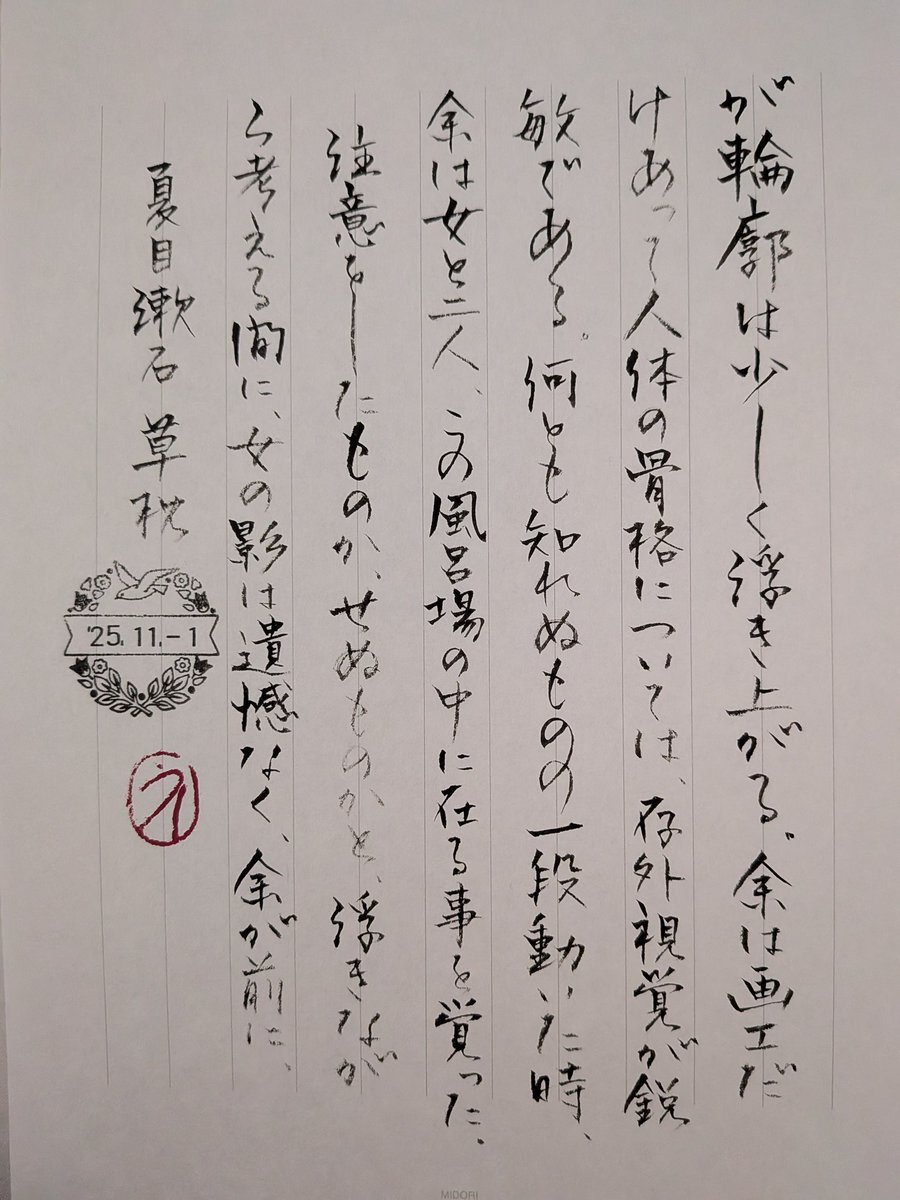 が輪廓は少しく浮き上がる。余は画工だ
けあって人体の骨格については、存外視覚が鋭
敏である。何とも知れぬものの一段動いた時、
余は女と二人、この風呂場の中に在る事を覚った。
注意をしたものか、せぬものかと、浮きなが
ら考える間に、女の影は遺憾なく、余が前に、
夏目漱石 草枕
'25.11.-1
MIDORI